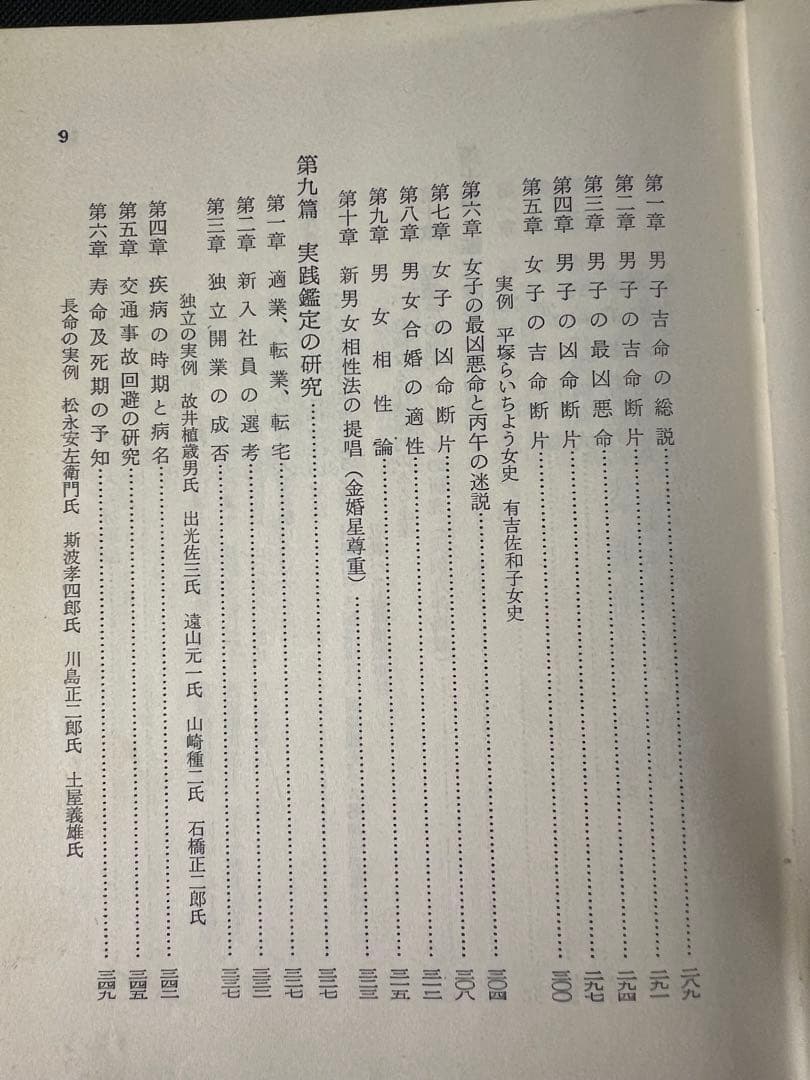 第一章　男子吉命の総説……………二八九
第二章　男子の吉命断片……………二九一
第三章　男子の最凶悪命……………二九四
第四章　男子の凶命断片……………二九七
第五章　女子の吉命断片……………三〇〇
実例　平塚らいちよう女史　有吉佐和子女史
第六章　女子の最凶悪命と丙午の迷説……………三〇四
第七章　女子の凶命断片……………三〇八
第八章　男女合婚の適性……………三一二
第九章　男女相性論……………三一五
第十章　新男女相性法の提唱（金婚星尊重）……………三二三
第九篇　実践鑑定の研究……………三二七
第一章　適業、転業、転宅……………三二七
第二章　新入社員の選考……………三三二
第三章　独立開業の成否……………三三七
独立の実例　故井植歳男氏　出光佐三氏　遠山元一氏　山崎種二氏　石橋正二郎氏
第四章　疾病の時期と病名……………三四二
第五章　交通事故回避の研究……………三四五
第六章　寿命及死期の予知……………三四九
長命の実例　松永安左衛門氏　斯波孝四郎氏　川島正二郎氏　土屋義雄氏
9